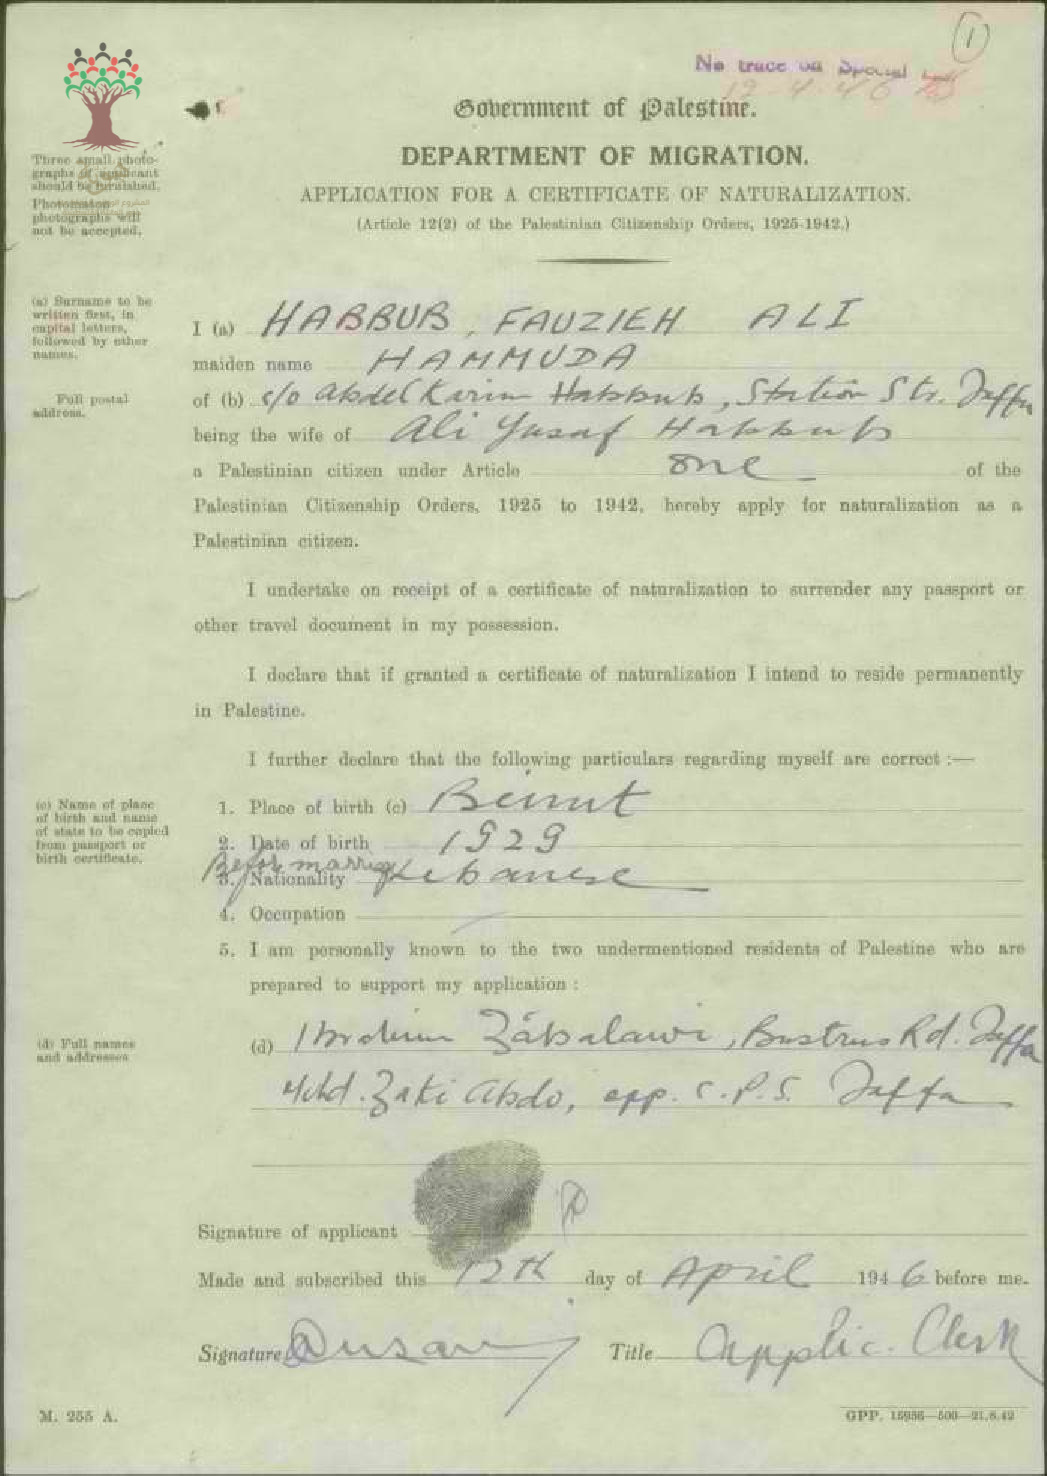 1
No trace on Special
12-4-46
Government of Palestine.
DEPARTMENT OF MIGRATION.
APPLICATION FOR A CERTIFICATE OF NATURALIZATION.
(Article 12(2) of the Palestinian Citizenship Orders, 1925-1942.)
Three small photo-
graphs of applicant
should be furnished.
Photomaton
photographs will
not be accepted.
(a) Surname to be
written first, in
capital letters,
followed by other
names.
I (a) HABBUB, FAUZIEH ALI
maiden name HAMMUDA
Full postal
address.
of (b) c/o Abdel Karim Habbub, Station Str. Jaffa
being the wife of Ali Yusaf Habbub
a Palestinian citizen under Article one of the
Palestinian Citizenship Orders, 1925 to 1942, hereby apply for naturalization as a
Palestinian citizen.
I undertake on receipt of a certificate of naturalization to surrender any passport or
other travel document in my possession.
I declare that if granted a certificate of naturalization I intend to reside permanently
in Palestine.
I further declare that the following particulars regarding myself are correct :—
(c) Name of place
of birth and name
of state to be copied
from passport or
birth certificate.
1. Place of birth (c) Beirut
2. Date of birth 1929
Before marriag
3. Nationality Lebanese
4. Occupation
5. I am personally known to the two undermentioned residents of Palestine who are
prepared to support my application :
(d) Full names
and addresses
(d) Ibrahim Zabalawi, Bustrus Rd. Jaffa
Mhd. Zaki Abdo, opp. C.P.S. Jaffa
Signature of applicant
Made and subscribed this 12th day of April 1946 before me.
Signature Title Applic. Clerk
M. 255 A.
GPP. 15936—500—21.8.42